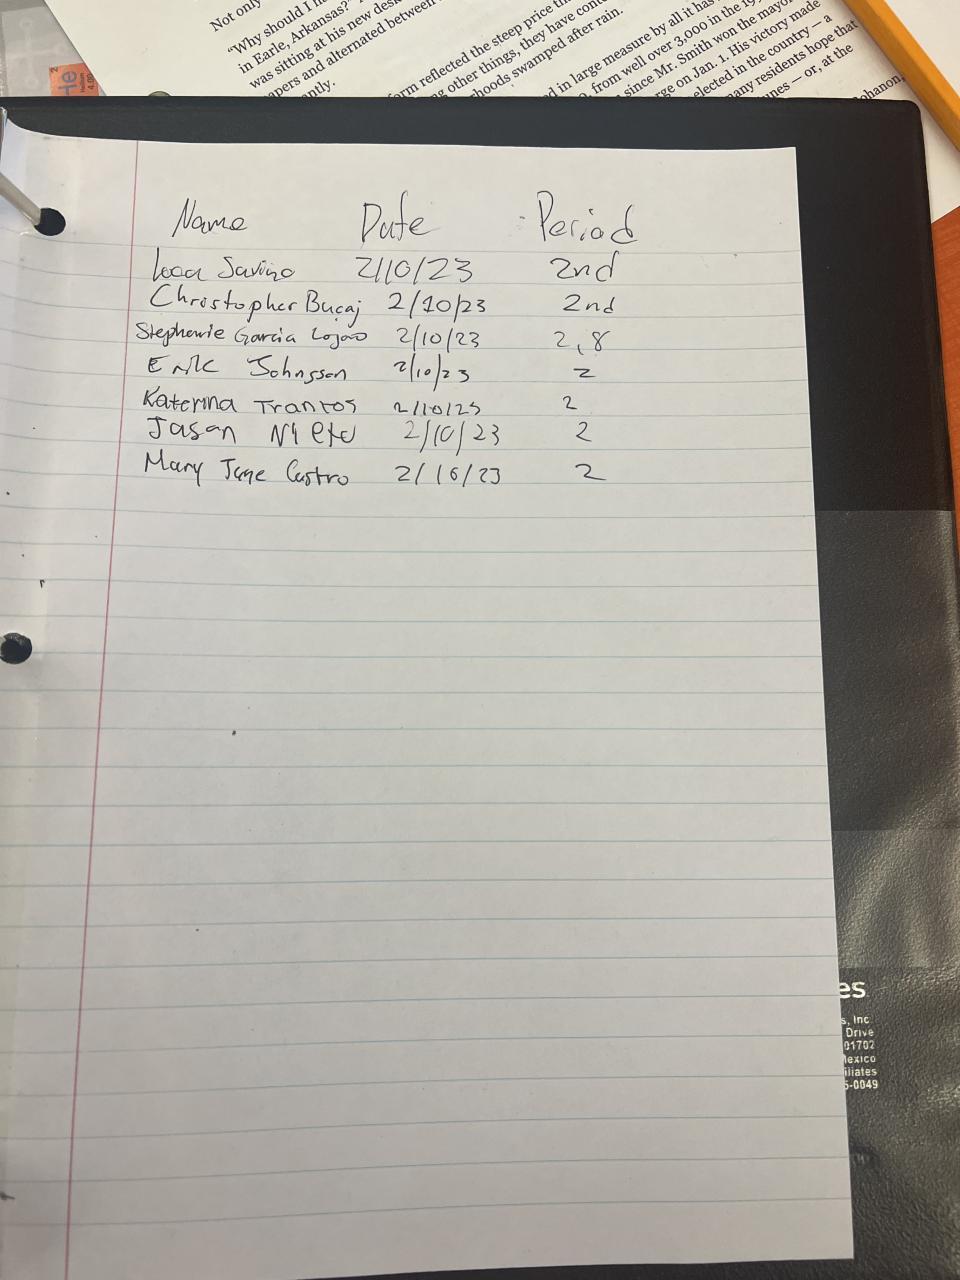 Not only
"Why should I h
in Earle, Arkansas?"
was sitting at his new desk
apers and alternated between
antly.
orm reflected the steep price th
g other things, they have cont
rhoods swamped after rain.
d in large measure by all it has
, from well over 3,000 in the 19
since Mr. Smith won the mayor
rge on Jan. 1. His victory made
elected in the country — a
any residents hope that
unes — or, at the
ohanon,
2
He
4.00
Name Date Period
Luca Savino 2/10/23 2nd
Christopher Bucaj 2/10/23 2nd
Stephanie Garcia Lojano 2/10/23 2,8
Erik Johnsson 2/10/23 2
Katerina Trantos 2/10/23 2
Jasan Nieto 2/10/23 2
Mary Jane Castro 2/16/23 2
es
s, Inc
Drive
01702
Mexico
iliates
5-0049